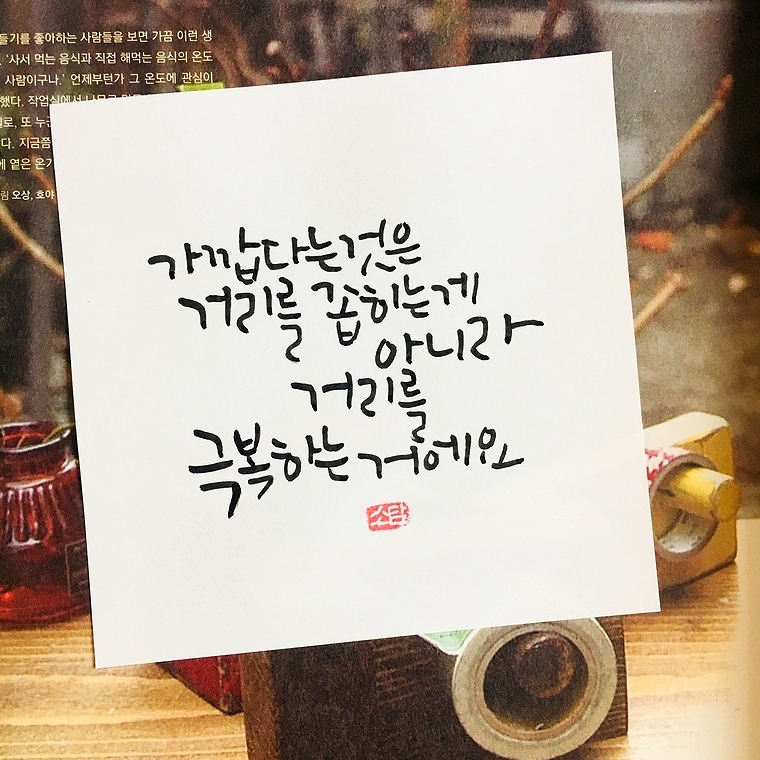 들기를 좋아하는 사람들을 보면 가끔 이런 생
‘사서 먹는 음식과 직접 해먹는 음식의 온도
사람이구나.’ 언제부턴가 그 온도에 관심이
했다. 작업실에서
로, 또
다. 지금쯤
에 옅은 온기
림 오상, 호야
가깝다는것은
거리를 좁히는게
아니라
거리를
극복하는거에요
소담